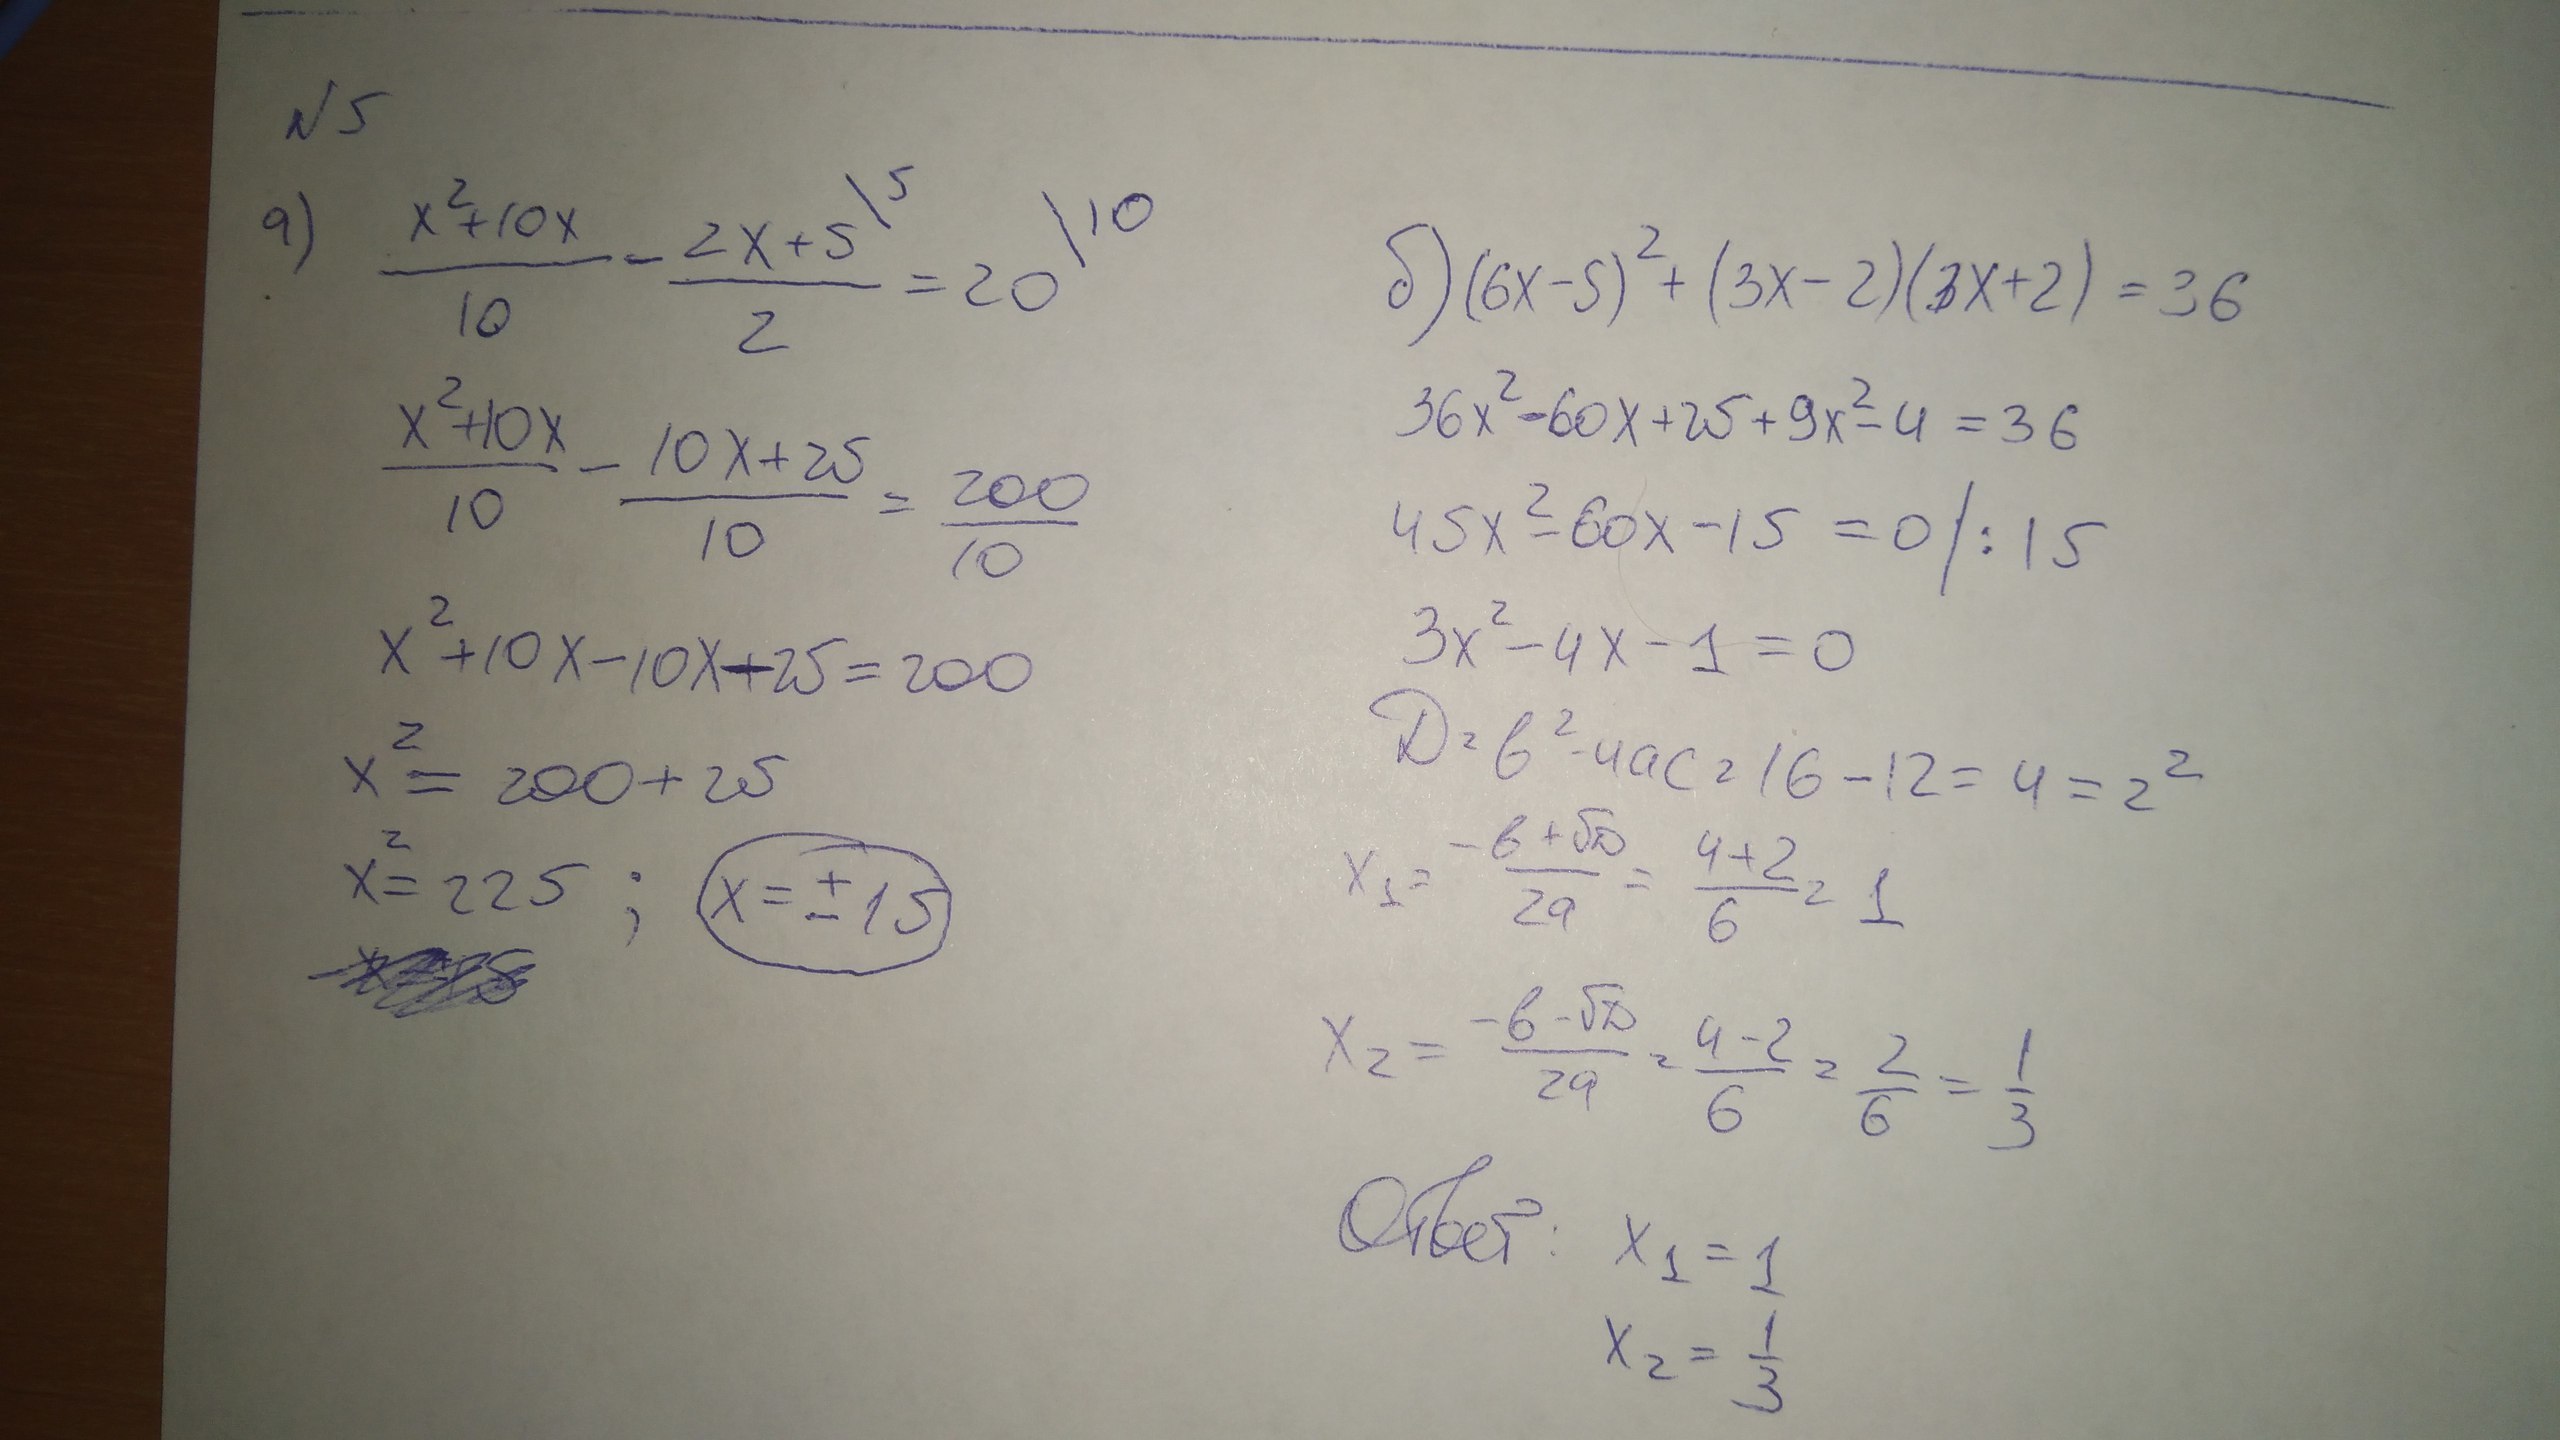 N5
а) (x²+10x)/10 - (2x+5)/2 \5 = 20 \10
(x²+10x)/10 - (10x+25)/10 = 200/10
x²+10x-10x-25=200
x² = 200+25
x²=225 ; x=±15
б) (6x-5)²+(3x-2)(3x+2)=36
36x²-60x+25+9x²-4=36
45x²-60x-15=0 /:15
3x²-4x-1=0
D=b²-4ac=16-12=4=2²
x₁=(-b+√D)/2a=(4+2)/6=1
x₂=(-b-√D)/2a=(4-2)/6=2/6=1/3
Ответ: x₁=1
x₂=1/3